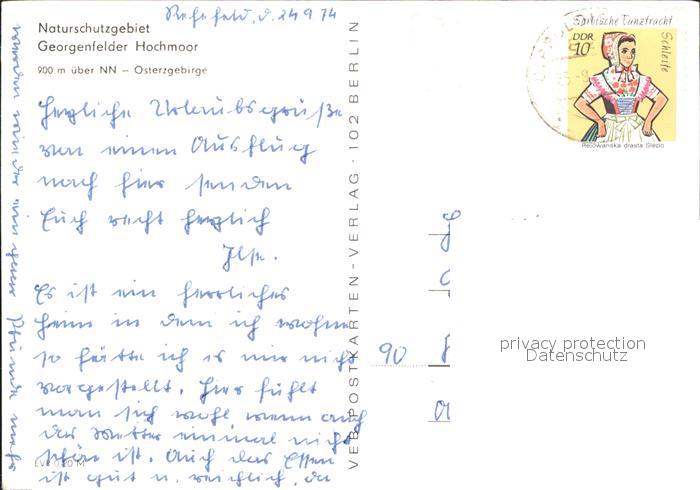 Rehefeld, d. 24.9.74
Naturschutzgebiet
Georgenfelder Hochmoor
900 m über NN – Osterzgebirge
Herzliche Urlaubsgrüße
von einen Ausflug
nach hier senden
Euch recht herzlich
Ilse.
Es ist ein herrliches
Heim in dem ich wohne
so hätte ich es mir nicht
vorgestellt. Hier fühlt
man sich wohl, wenn auch
das Wetter einmal nicht
schön ist. Auch das Essen
ist gut u. reichlich, da
werden wir wieder einige Pfunde mehr
VEB POSTKARTEN-VERLAG · 102 BERLIN
90
Sorbische Tanztracht
Schleife
DDR
10
Rejowanska drasta Slepo
privacy protection
Datenschutz